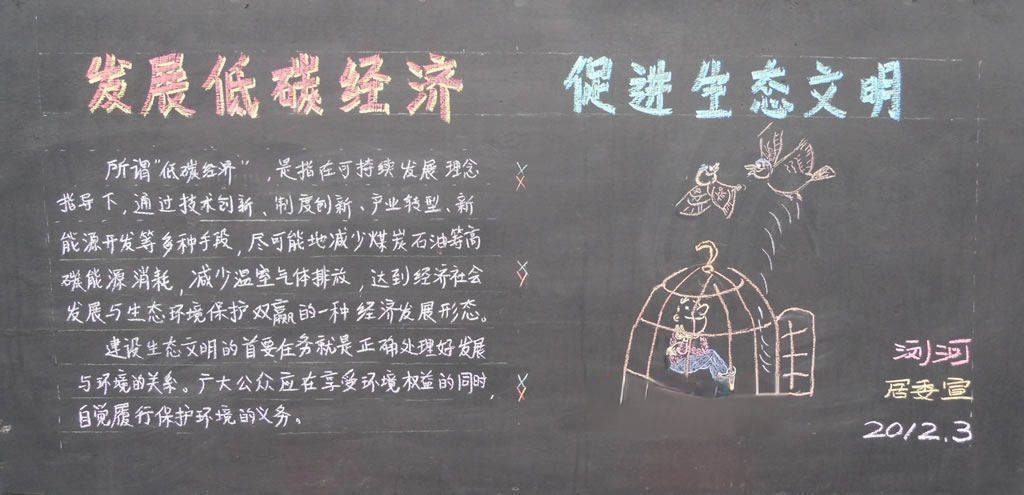 发展低碳经济 促进生态文明
所谓"低碳经济",是指在可持续发展理念
指导下,通过技术创新、制度创新、产业转型、新
能源开发等多种手段,尽可能地减少煤炭石油等高
碳能源消耗,减少温室气体排放,达到经济社会
发展与生态环境保护双赢的一种经济发展形态。
建设生态文明的首要任务就是正确处理好发展
与环境的关系。广大公众应在享受环境权益的同时,
自觉履行保护环境的义务。
浏河
居委宣
2012.3